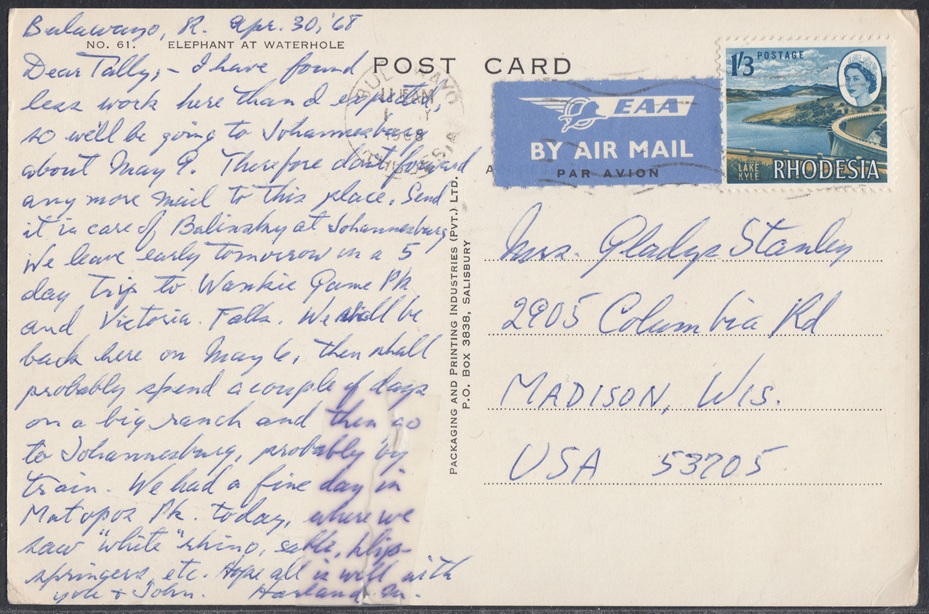 Bulawayo, R. Apr. 30, '68
NO. 61. ELEPHANT AT WATERHOLE
Dear Tally, - I have found
less work here than I expected,
so we'll be going to Johannesburg
about May 8. Therefore don't forward
any more mail to this place. Send
it in care of Balinsky at Johannesburg
We leave early tomorrow in a 5
day trip to Wankie Game Pk
and Victoria Falls. We shall be
back here on May 6, then shall
probably spend a couple of days
on a big ranch and then go
to Johannesburg, probably by
train. We had a fine day in
Matopos Pk. today, where we
saw "white" rhino, sable, klip-
springers, etc. Hope all is well with
you & John. Harland
POST CARD
BULAWAYO
11 15 AM
1968
RHODESIA
EAA
BY AIR MAIL
PAR AVION
1/3 POSTAGE
LAKE
KYLE
RHODESIA
PACKAGING AND PRINTING INDUSTRIES (PVT.) LTD.
P.O. BOX 3838, SALISBURY
Mrs. Gladys Stanley
2905 Columbia Rd
MADISON, WIS.
USA 53705